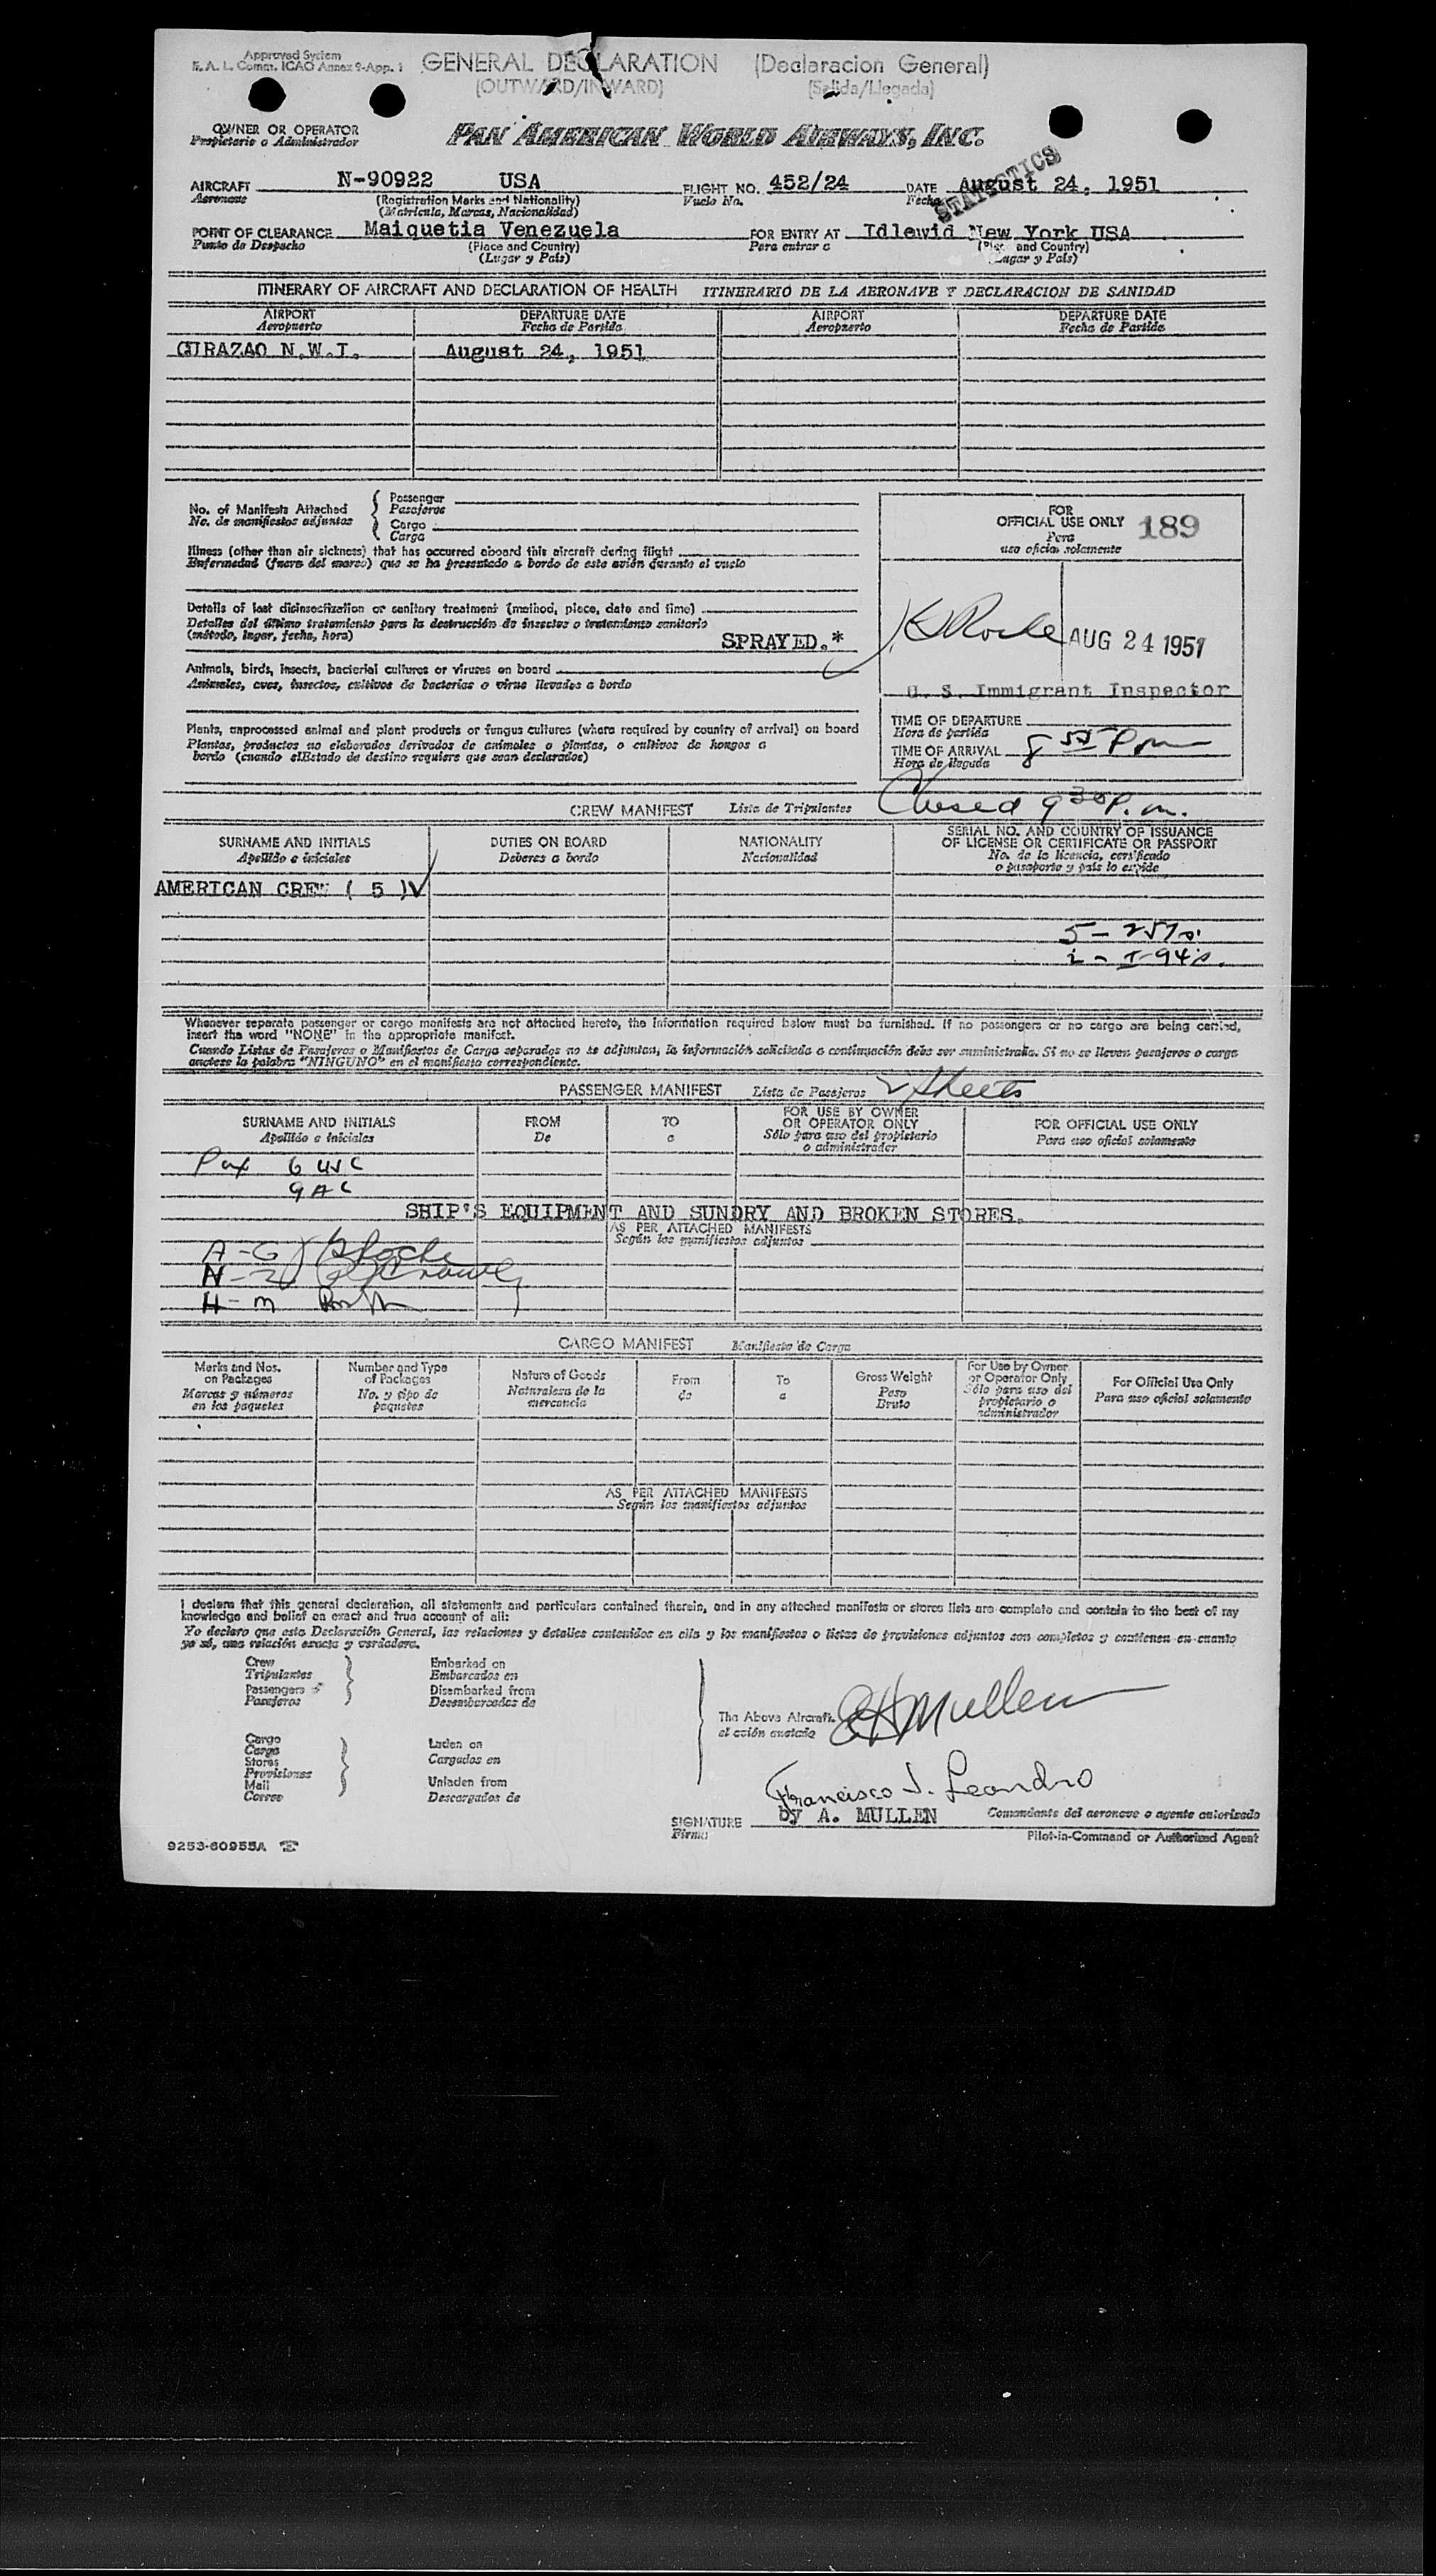 Approved System
E. A. L. Comm. ICAO Annex 9-App. 1
GENERAL DECLARATION (Declaracion General)
(OUTWARD/INWARD) (Salida/Llegada)
OWNER OR OPERATOR
Propietario o Administrador
PAN AMERICAN WORLD AIRWAYS, INC.
STATISTICS
AIRCRAFT N-90922 USA FLIGHT NO. 452/24 DATE August 24, 1951
Aeronave (Registration Marks and Nationality) Vuelo No. Fecha
(Matricula, Marcas, Nacionalidad)
POINT OF CLEARANCE Maiquetia Venezuela FOR ENTRY AT Idlewid New York USA
Punto de Despacho (Place and Country) Para entrar a (Place and Country)
(Lugar y País) (Lugar y País)
ITINERARY OF AIRCRAFT AND DECLARATION OF HEALTH ITINERARIO DE LA AERONAVE Y DECLARACION DE SANIDAD
AIRPORT DEPARTURE DATE AIRPORT DEPARTURE DATE
Aeropuerto Fecha de Partida Aeropuerto Fecha de Partida
CURAZAO N.W.I. August 24, 1951
No. of Manifests Attached
No. de manifiestos adjuntos
Passenger
Pasajeros
Cargo
Carga
FOR
OFFICIAL USE ONLY 189
Para
uso oficial solamente
Illness (other than air sickness) that has occurred aboard this aircraft during flight
Enfermedad (fuera del mareo) que se ha presentado a bordo de este avión durante el vuelo
Details of last disinsectization or sanitary treatment (method, place, date and time)
Detalles del último tratamiento para la destrucción de insectos o tratamiento sanitario
(método, lugar, fecha, hora)
SPRAYED.*
AUG 24 1951
U. S. Immigrant Inspector
Animals, birds, insects, bacterial cultures or viruses on board
Animales, aves, insectos, cultivos de bacterias o virus llevados a bordo
Plants, unprocessed animal and plant products or fungus cultures (where required by country of arrival) on board
Plantas, productos no elaborados derivados de animales o plantas, o cultivos de hongos a
bordo (cuando elEstado de destino requiere que sean declarados)
TIME OF DEPARTURE
Hora de partida
TIME OF ARRIVAL 8 55 P m
Hora de llegada
Closed 9 30 P. m.
CREW MANIFEST Lista de Tripulantes
SURNAME AND INITIALS DUTIES ON BOARD NATIONALITY SERIAL NO. AND COUNTRY OF ISSUANCE
OF LICENSE OR CERTIFICATE OR PASSPORT
Apellido e iniciales Deberes a bordo Nacionalidad No. de la licencia, certificado
o pasaporte y país lo expide
AMERICAN CREW ( 5 )
5 - 257s.
2 - I-94's.
Whenever separate passenger or cargo manifests are not attached hereto, the information required below must be furnished. If no passengers or no cargo are being carried,
insert the word "NONE" in the appropriate manifest.
Cuando Listas de Pasajeros o Manifiestos de Carga separados no se adjuntan, la información solicitada a continuación debe ser suministrada. Si no se llevan pasajeros o carga
anotese la palabra "NINGUNO" en el manifiesto correspondiente.
PASSENGER MANIFEST Lista de Pasajeros 2 sheets
SURNAME AND INITIALS FROM TO FOR USE BY OWNER
OR OPERATOR ONLY FOR OFFICIAL USE ONLY
Apellido e iniciales De a Sólo para uso del propietario
o administrador Para uso oficial solamente
Pax 6 USC
9 AC
SHIP'S EQUIPMENT AND SUNDRY AND BROKEN STORES.
AS PER ATTACHED MANIFESTS
Según los manifiestos adjuntos
A-G
N-Z
H-M
CARGO MANIFEST Manifiesto de Carga
Marks and Nos.
on Packages
Marcas y números
en los paquetes
Number and Type
of Packages
No. y tipo de
paquetes
Nature of Goods
Naturaleza de la
mercancía
From
de
To
a
Gross Weight
Peso
Bruto
For Use by Owner
or Operator Only
Sólo para uso del
propietario o
administrador
For Official Use Only
Para uso oficial solamente
AS PER ATTACHED MANIFESTS
Según los manifiestos adjuntos
I declare that this general declaration, all statements and particulars contained therein, and in any attached manifests or stores lists are complete and contain to the best of my
knowledge and belief an exact and true account of all:
Yo declaro que esta Declaración General, las relaciones y detalles contenidos en ella y los manifiestos o listas de provisiones adjuntos son completos y contienen en cuanto
yo sé, una relación exacta y verdadera.
Crew
Tripulantes
Passengers
Pasajeros
Embarked on
Embarcados en
Disembarked from
Desembarcados de
Cargo
Carga
Stores
Provisiones
Mail
Correo
Laden on
Cargados en
Unladen from
Descargados de
The Above Aircraft.
el avión anotado
Mullen
Francisco J. Leandro
SIGNATURE by A. MULLEN Comandante del aeronave o agente autorizado
Firma Pilot-in-Command or Authorized Agent
9253-60955A